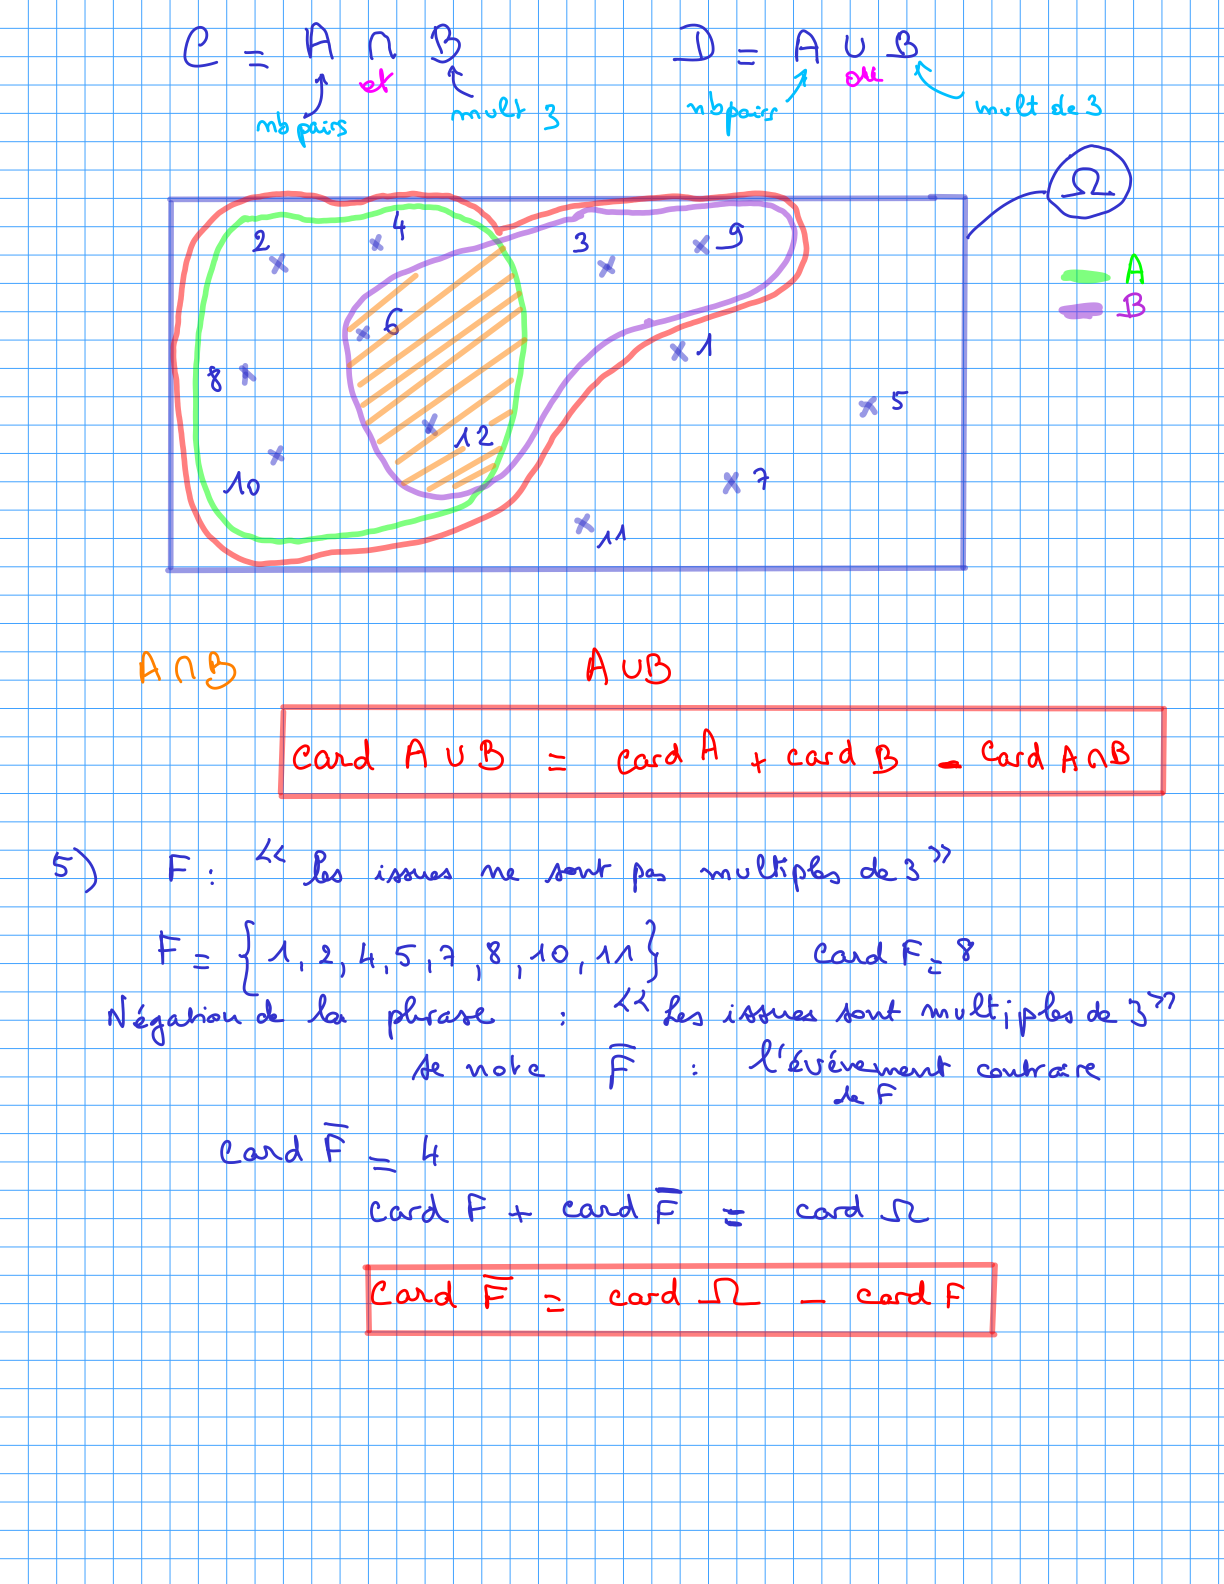 C = A ∩ B D = A ∪ B
et ou
nb pairs mult 3 nb pairs mult de 3
Ω
2 4 3 9
A
B
6
1
8
5
12
10 7
11
A ∩ B A ∪ B
card A ∪ B = card A + card B - card A ∩ B
5) F : << les issues ne sont pas multiples de 3 >>
F = {1, 2, 4, 5, 7, 8, 10, 11} card F = 8
Négation de la phrase : << Les issues sont multiples de 3 >>
se note F̅ : l'événement contraire
de F
card F̅ = 4
card F + card F̅ = card Ω
card F̅ = card Ω - card F